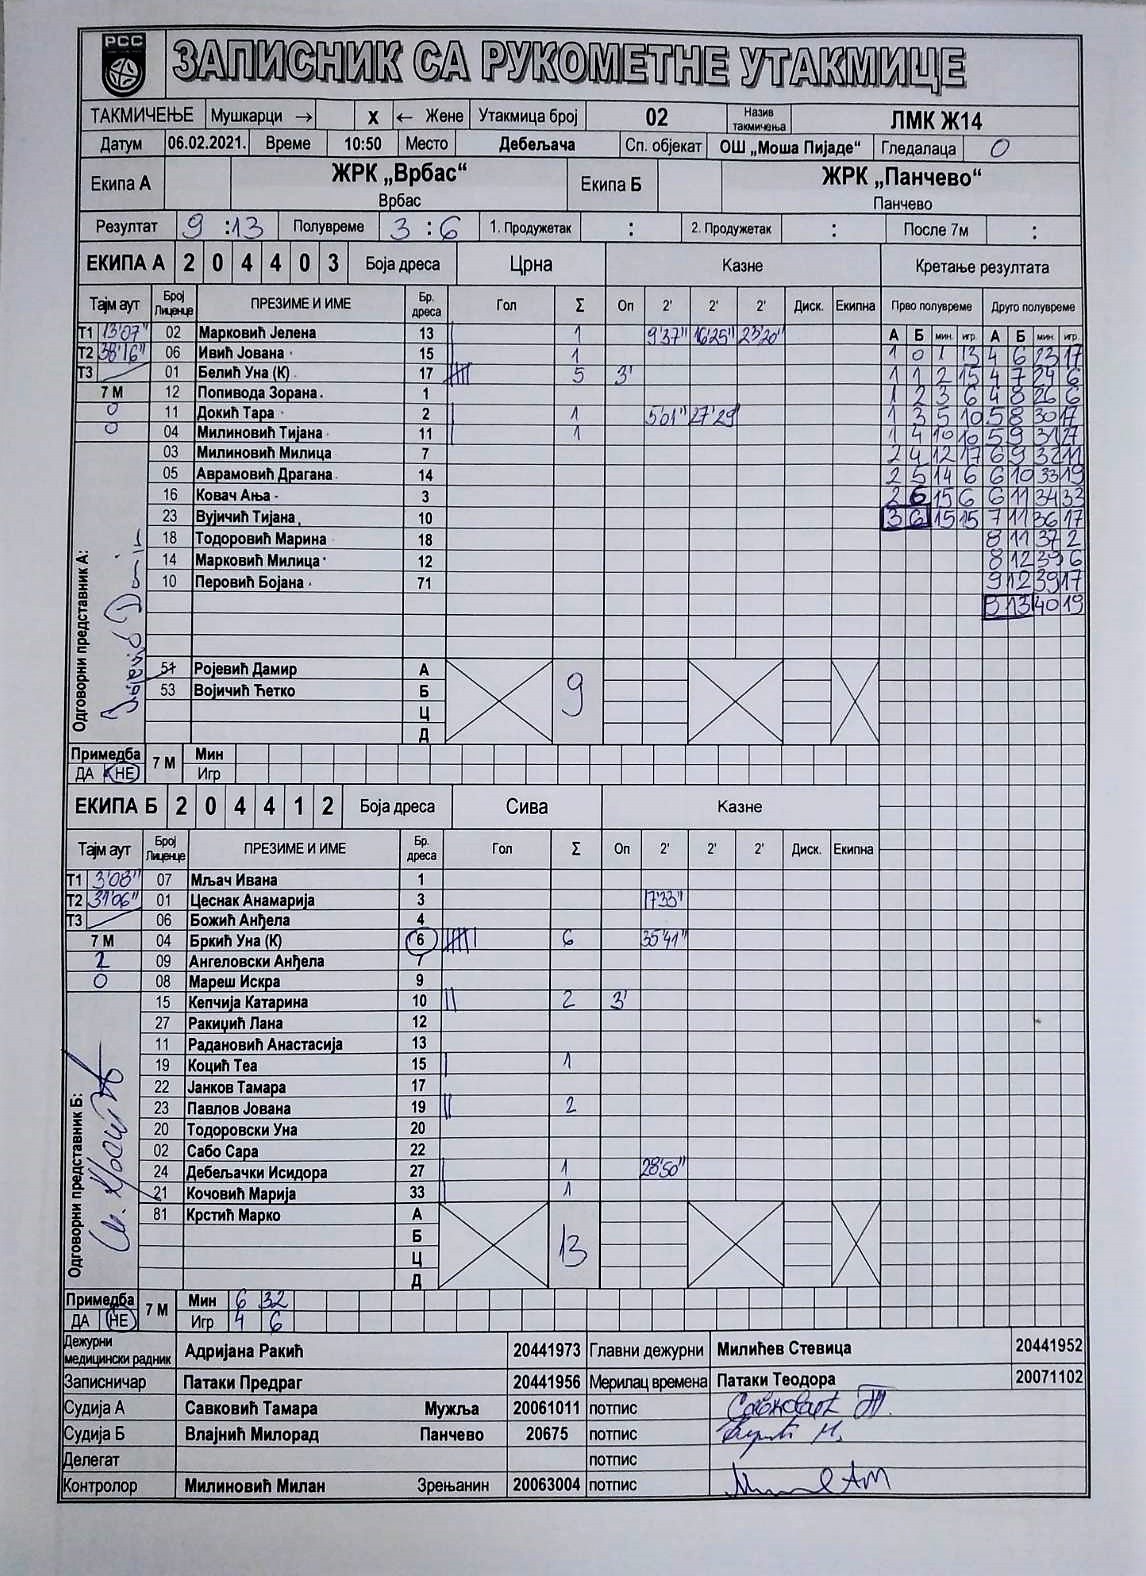 РСС
ЗАПИСНИК СА РУКОМЕТНЕ УТАКМИЦЕ
ТАКМИЧЕЊЕ Мушкарци → x ← Жене Утакмица број 02 Назив такмичења ЛМК Ж14
Датум 06.02.2021. Време 10:50 Место Дебељача Сп. објекат ОШ „Моша Пијаде“ Гледалаца 0
Екипа А ЖРК „Врбас“ Екипа Б ЖРК „Панчево“
Врбас Панчево
Резултат 9 :13 Полувреме 3 : 6 1. Продужетак : 2. Продужетак : После 7м :
ЕКИПА А 2 0 4 4 0 3 Боја дреса Црна Казне Кретање резултата
Тајм аут Број Лиценце ПРЕЗИМЕ И ИМЕ Бр. дреса Гол Σ Оп 2' 2' 2' Диск. Екипна Прво полувреме Друго полувреме
А Б мин. игр. А Б мин. игр.
Т1 13'07" 02 Марковић Јелена 13 | 1 9'37" 16'25" 23'20"
Т2 38'16" 06 Ивић Јована 15 1 1 0 1 13 4 6 23 17
Т3 01 Белић Уна (К) 17 5 3' 1 1 2 15 4 7 24 6
7 М 12 Попивода Зорана 1 1 2 3 6 4 8 26 6
0 11 Докић Тара 2 | 1 5'01" 27'29 1 3 5 10 5 8 30 17
0 04 Милиновић Тијана 11 | 1 1 4 10 10 5 9 31 27
03 Милиновић Милица 7 2 4 12 17 6 9 32 11
05 Аврамовић Драгана 14 2 5 14 6 6 10 33 19
16 Ковач Ања 3 2 6 15 6 6 11 34 33
23 Вујичић Тијана 10 3 6 15 15 7 11 36 17
18 Тодоровић Марина 18 8 11 37 2
14 Марковић Милица 12 8 12 39 6
10 Перовић Бојана 71 9 12 39 17
9 13 40 19
Одговорни представник А:
51 Ројевић Дамир А 9
53 Војичић Ћетко Б
Ц
Д
Примедба 7 М Мин
ДА НЕ Игр
ЕКИПА Б 2 0 4 4 1 2 Боја дреса Сива Казне
Тајм аут Број Лиценце ПРЕЗИМЕ И ИМЕ Бр. дреса Гол Σ Оп 2' 2' 2' Диск. Екипна
Т1 3'08" 07 Мљач Ивана 1
Т2 31'06" 01 Цеснак Анамарија 3 17'33"
Т3 06 Божић Анђела 4
7 М 04 Бркић Уна (К) 6 6 35'41"
2 09 Ангеловски Анђела 7
0 08 Мареш Искра 9
15 Кепчија Катарина 10 || 2 3'
27 Ракиџић Лана 12
11 Радановић Анастасија 13
19 Коцић Теа 15 | 1
22 Јанков Тамара 17
23 Павлов Јована 19 || 2
20 Тодоровски Уна 20
02 Сабо Сара 22
24 Дебељачки Исидора 27 | 1 28'50"
21 Кочовић Марија 33 | 1
Одговорни представник Б:
81 Крстић Марко А 13
Б
Ц
Д
Примедба 7 М Мин 6 32
ДА НЕ Игр 4 6
Дежурни медицински радник Адријана Ракић 20441973 Главни дежурни Милићев Стевица 20441952
Записничар Патаки Предраг 20441956 Мерилац времена Патаки Теодора 20071102
Судија А Савковић Тамара Мужља 20061011 потпис Савковић Т.
Судија Б Влајнић Милорад Панчево 20675 потпис
Делегат потпис
Контролор Милиновић Милан Зрењанин 20063004 потпис